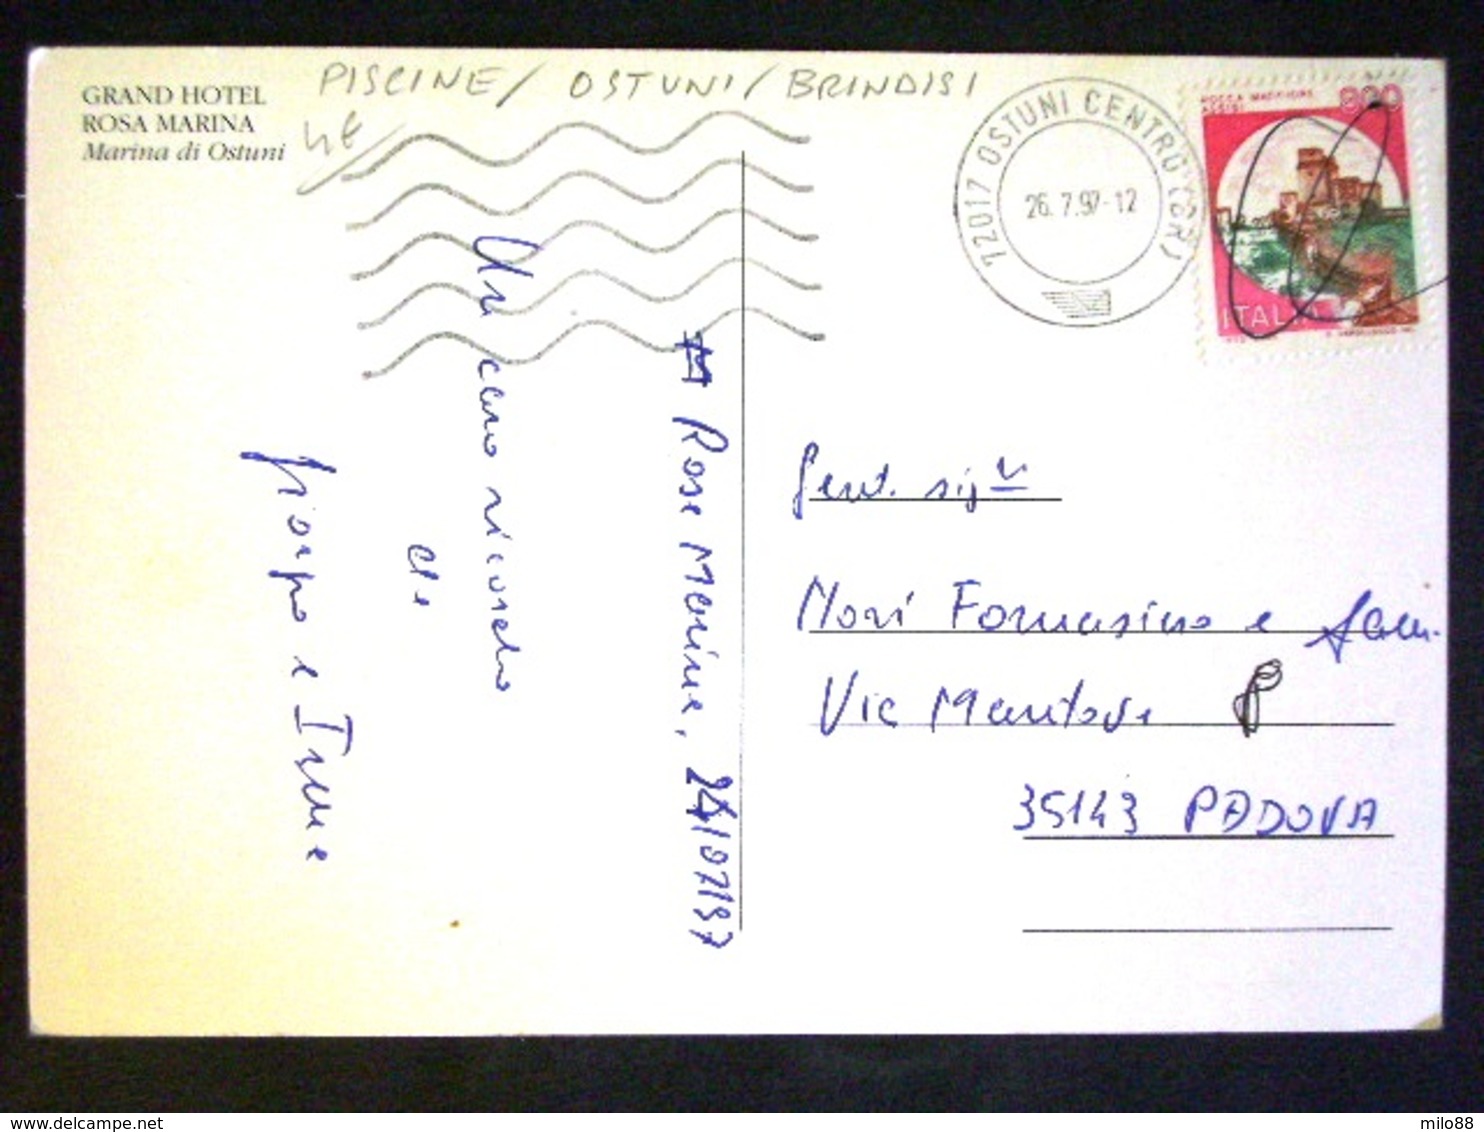 GRAND HOTEL
ROSA MARINA
Marina di Ostuni
PISCINE/ OSTUNI/ BRINDISI
4€
72017 OSTUNI CENTRO (BR)
26.7.97-12
ROCCA MAGGIORE
ASSISI
ITALIA
Rosa Marina, 24/07/97
Un caro ricordo
da
Giorgio e Irene
Gent. sig.
Mori Fornasiero e fam.
Via Mantova 8
35143 PADOVA
delcampe.net
milo88